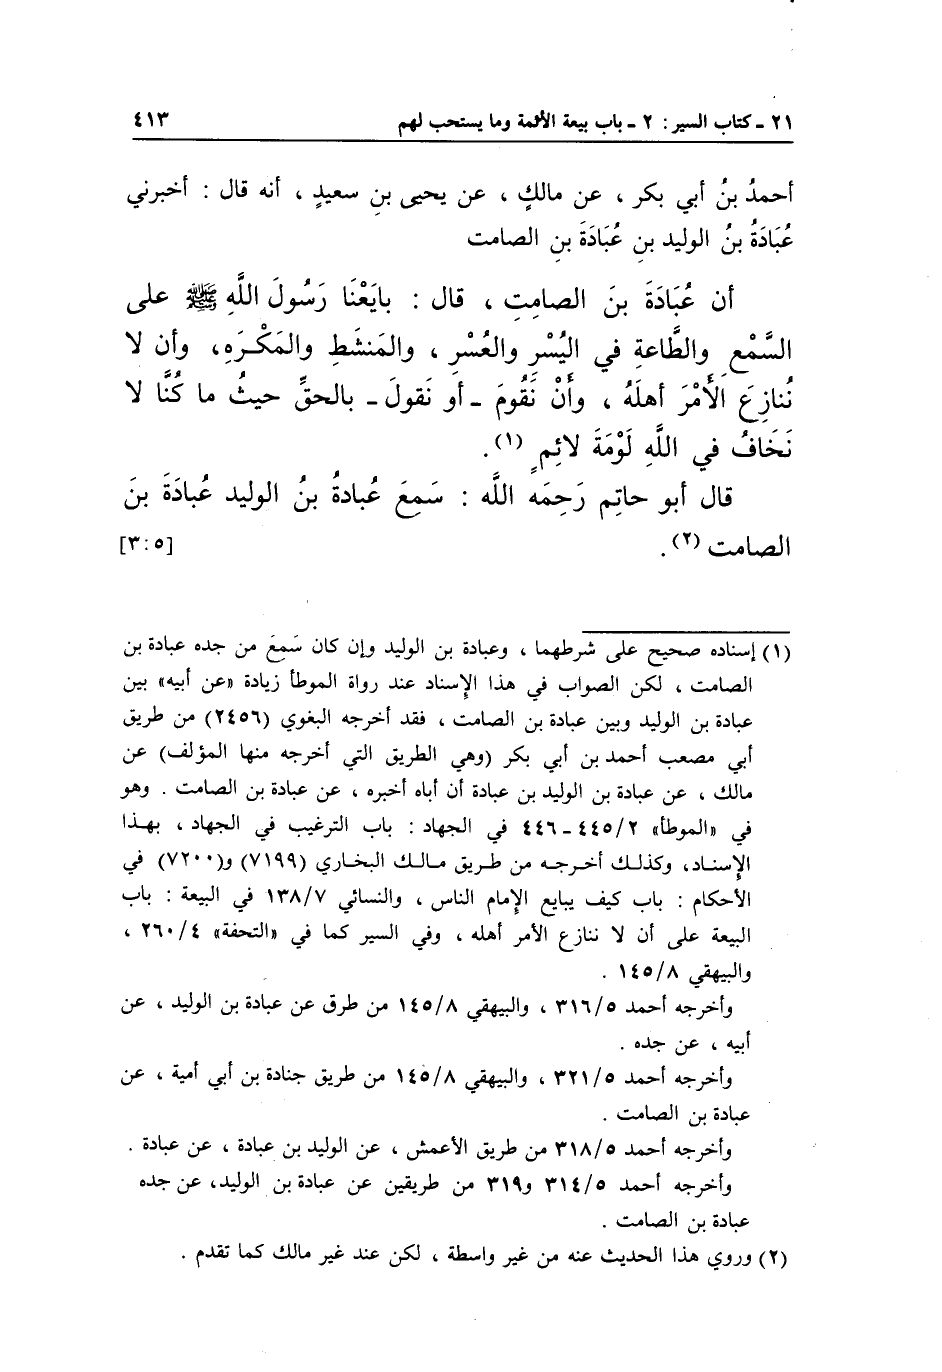 ٢١ ـ كتاب السير : ٢ ـ باب بيعة الأئمة وما يستحب لهم ٤١٣
أحمدُ بنُ أبي بكر ، عن مالكٍ ، عن يحيى بنِ سعيدٍ ، أنه قال : أخبرني
عُبَادَةُ بنُ الوليد بنِ عُبَادَةَ بنِ الصامت
أن عُبَادَةَ بنَ الصامِتِ ، قال : بايَعْنَا رَسُولَ اللَّهِ ﷺ على
السَّمْعِ والطَّاعةِ في اليُسْرِ والعُسْرِ ، والمَنشَطِ والمَكْرَهِ، وأن لا
نُنازِعَ الأَمْرَ أهلَهُ ، وأَنْ نَقُومَ ـ أو نَقولَ ـ بالحقِّ حيثُ ما كُنَّا لا
نَخَافُ في اللَّهِ لَوْمَةَ لائِمٍ (١).
قال أبو حاتِم رَحِمَه اللَّه : سَمِعَ عُبادةُ بنُ الوليد عُبادَةَ بنَ
الصامت (٢) . [٣:٥]
(١) إسناده صحيح على شرطهما ، وعبادة بن الوليد وإن كان سَمِعَ من جده عبادة بن
الصامت ، لكن الصواب في هذا الإسناد عند رواة الموطأ زيادة «عن أبيه» بين
عبادة بن الوليد وبين عبادة بن الصامت ، فقد أخرجه البغوي (٢٤٥٦) من طريق
أبي مصعب أحمد بن أبي بكر (وهي الطريق التي أخرجه منها المؤلف) عن
مالك ، عن عبادة بن الوليد بن عبادة أن أباه أخبره ، عن عبادة بن الصامت . وهو
في «الموطأ» ٤٤٥/٢ ـ ٤٤٦ في الجهاد : باب الترغيب في الجهاد ، بهذا
الإسناد، وكذلك أخرجه من طريق مالك البخاري (٧١٩٩) و(٧٢٠٠) في
الأحكام : باب كيف يبايع الإمام الناس ، والنسائي ١٣٨/٧ في البيعة : باب
البيعة على أن لا ننازع الأمر أهله ، وفي السير كما في «التحفة» ٢٦٠/٤ ،
والبيهقي ١٤٥/٨ .
وأخرجه أحمد ٣١٦/٥ ، والبيهقي ١٤٥/٨ من طرق عن عبادة بن الوليد ، عن
أبيه ، عن جده .
وأخرجه أحمد ٣٢١/٥ ، والبيهقي ١٤٥/٨ من طريق جنادة بن أبي أمية ، عن
عبادة بن الصامت .
وأخرجه أحمد ٣١٨/٥ من طريق الأعمش ، عن الوليد بن عبادة ، عن عبادة .
وأخرجه أحمد ٣١٤/٥ و٣١٩ من طريقين عن عبادة بن الوليد، عن جده
عبادة بن الصامت .
(٢) وروي هذا الحديث عنه من غير واسطة ، لكن عند غير مالك كما تقدم .